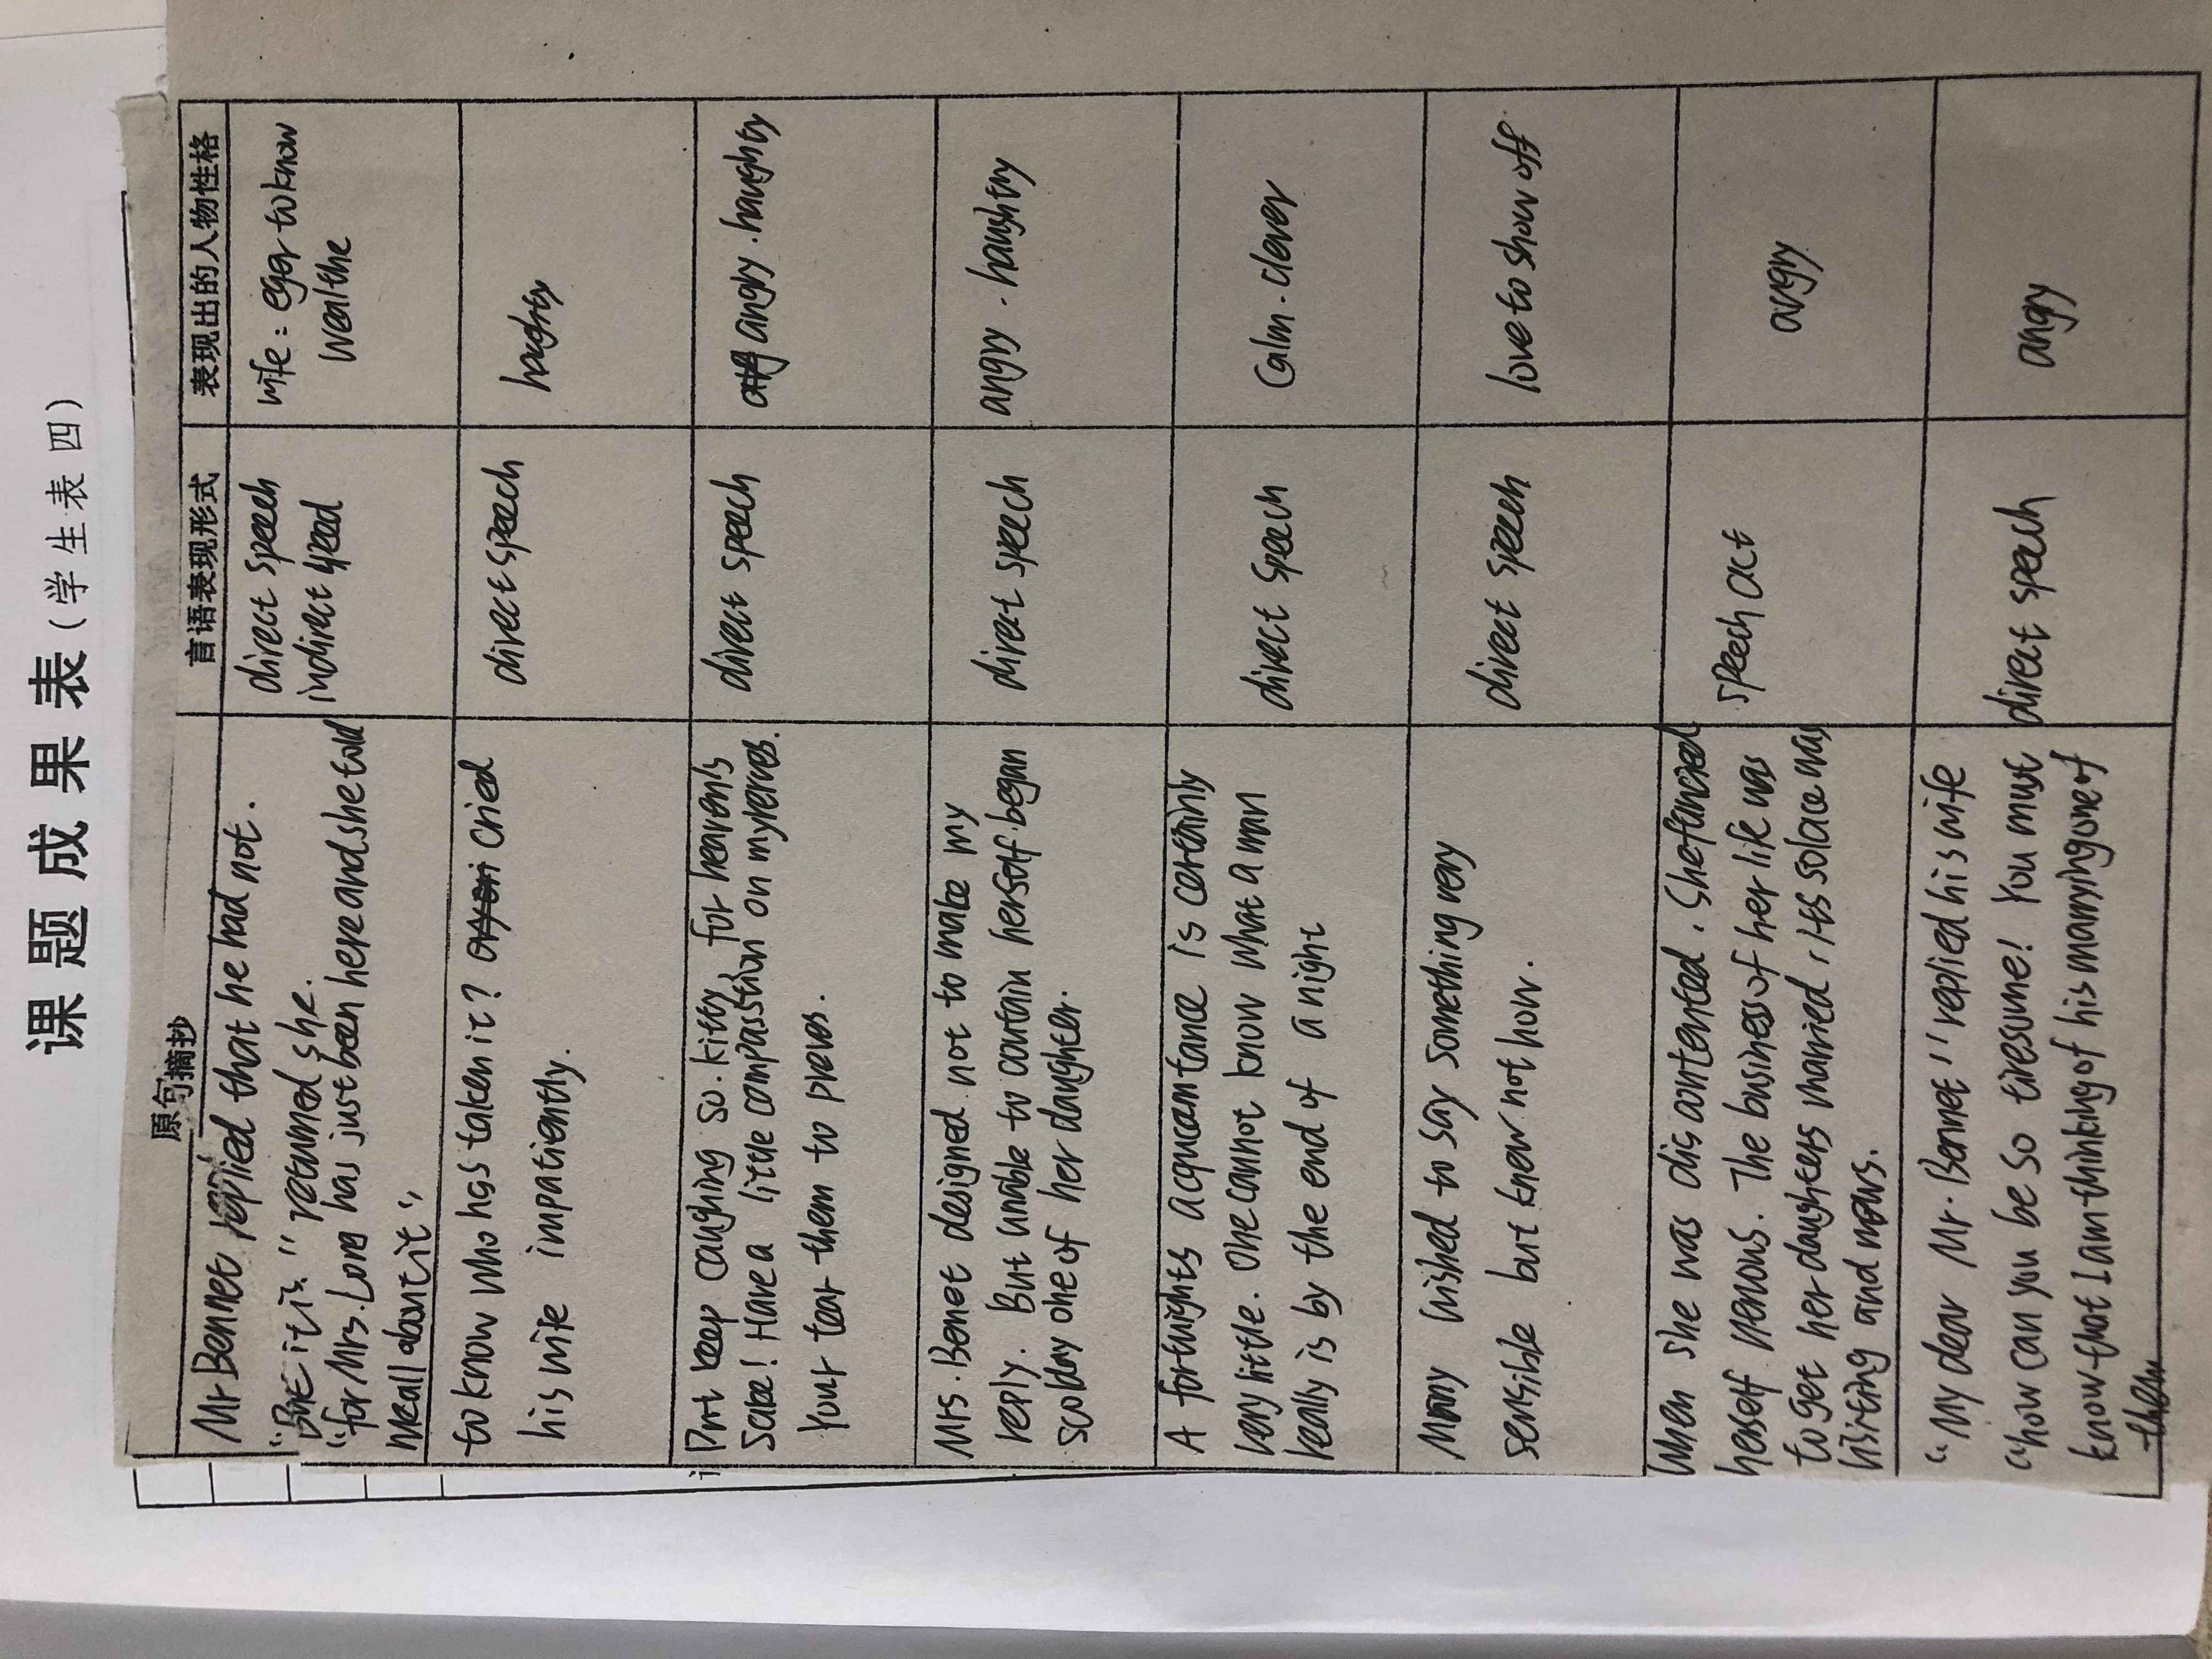 课题成果表（学生表四）
原句摘抄
言语表现形式
表现出的人物性格
Mr Bennet replied that he had not.
"But it is." returned she.
"for Mrs. Long has just been here and she told
me all about it",
direct speech
indirect speed
wife: eger to know
wealthe
to know who has taken it? cried
his wife impatiently.
direct speech
haughty
Don't keep coughing so. kitty, for heaven's
Sake! Have a little compasstion on my nerves.
Your tear them to pieves.
direct speech
angry. haughty
Mrs. Bennet deigned not to make my
reply. But unable to contain herself began
scolday one of her daughter.
diret speech
angry. haughty
A fortnights acquaintance is certainly
very little. One cannot know what a man
really is by the end of a night
direct speech
Calm. clever
Mary wished to say something very
sensible but knew not how.
direct speech
love to show off.
When she was discontented. She fancied
herself nervous. The business of her life was
to get her daughters married, its solace was
visiting and news.
speech act
angry
"My dear Mr. Bennet", replied his wife
"how can you be so tiresome! You must
know that I am thinking of his marrying one of
them
direct speech
angry